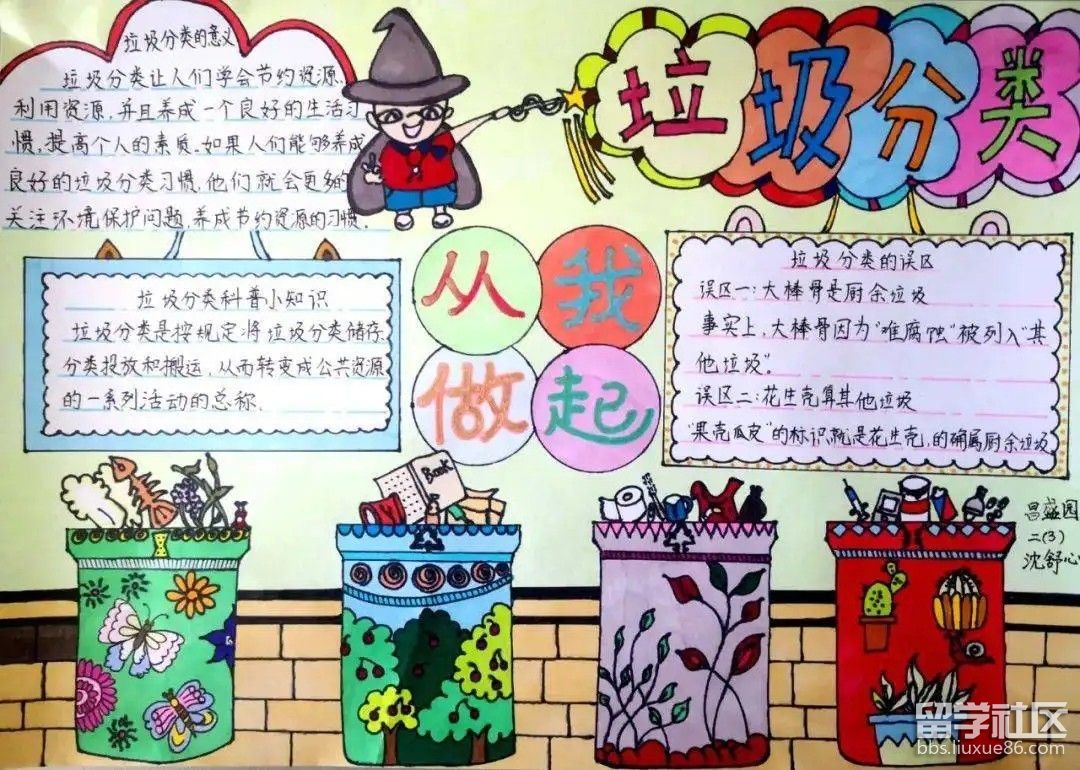 垃圾分类的意义
垃圾分类让人们学会节约资源、
利用资源,并且养成一个良好的生活习
惯,提高个人的素质.如果人们能够养成
良好的垃圾分类习惯.他们就会更多的
关注环境保护问题,养成节约资源的习惯.
垃圾分类
垃圾分类科普小知识
垃圾分类是按规定:将垃圾分类储存.
分类投放和搬运,从而转变成公共资源
的一系列活动的总称.
从我
做起
垃圾分类的误区
误区一:大棒骨是厨余垃圾
事实上,大棒骨因为“难腐蚀”被列入“其
他垃圾”.
误区二:花生壳算其他垃圾
“果壳瓜皮”的标识就是花生壳,的确属厨余垃圾
Book
昌盛园
二(3)
沈舒心
留学社区
bbs.liuxue86.com